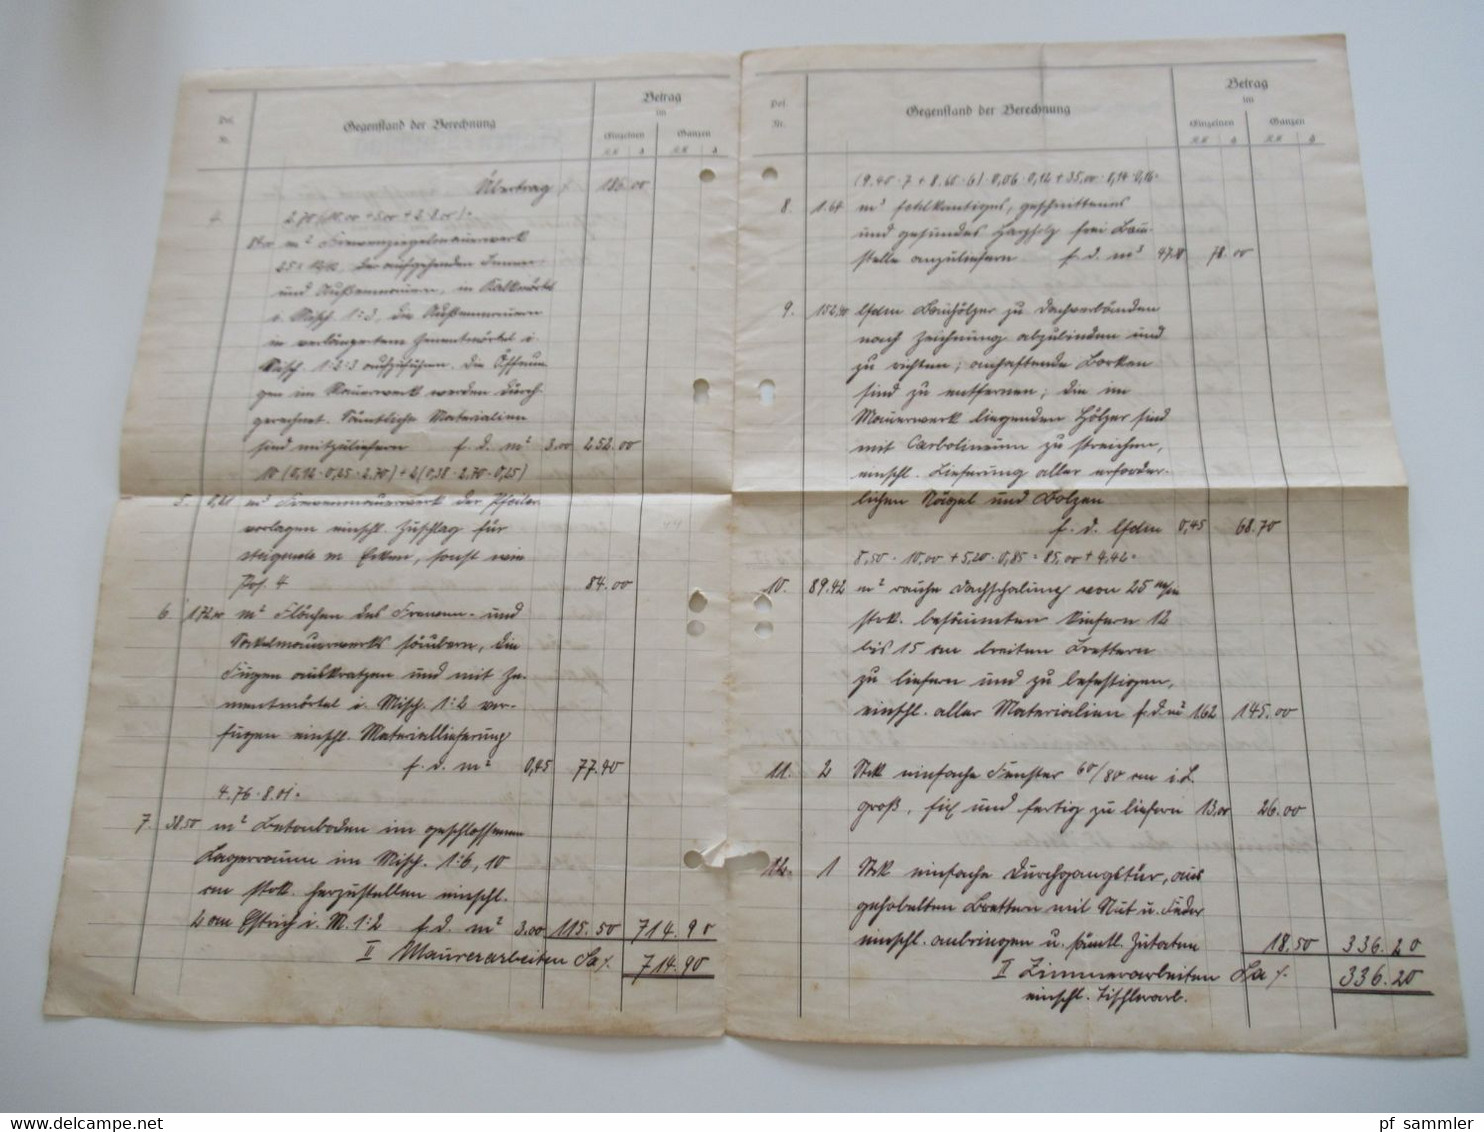 Pos. Nr.
Gegenstand der Berechnung
Betrag
im
Einzelnen
Ganzen
Übertrag 186.00
4. 2.70 (10.00 + 5.00 + 2 · 8.00) =
84.00 m² Frevenziegelmauerwerk
der aufgehenden Innen-
und Außenmauern, in Kalkmörtel
i. Misch. 1:3, die Außenmauern
in verlängertem Zementmörtel i.
Misch. 1:2:3 aufzuführen. Die Öffnun-
gen im Mauerwerk werden durch-
gerechnet. Sämtliche Materialien
sind mitzuliefern f. d. m² 3.00 252.00
10 (0,12 · 0,25 · 2.70) + 2 (0,38 · 2.70 · 0,25)
5. m³ Frevenmauerwerk der Pfeiler-
vorlagen einschl. Zuschlag für
steigende m Ecken, sonst wie
Pos. 4 84.00
6. 172.00 m² Flächen des Freven- und
Sockelmauerwerks säubern, die
Fugen auskratzen und mit Ze-
mentmörtel i. Misch. 1:2 ver-
fugen einschl. Materiallieferung
f. d. m² 0,45 77.40
4.76 · 8.01 =
7. 38.50 m² Betonboden im geschlossenen
Lagerraum im Misch. 1:6, 10
cm stk. herzustellen einschl.
2 cm Estrich i. M. 1:2 f. d. m² 3.00 115.50 714.90
II Maurerarbeiten Sa /. 714.90
Pos. Nr.
Gegenstand der Berechnung
Betrag
im
Einzelnen
Ganzen
(9.40 · 7 + 8.60 · 6) · 0,06 · 0,12 + 35,00 · 0,14 · 0,16 =
8. 1.64 m³ scharfkantiges, geschnittenes
und gesundes Bau-
stelle anzuliefern f. d. m³ 78.00
9. 152,90 lfdm Bauhölzer zu Dachverbänden
nach Zeichnung abzubinden und
zu richten; anhaftende Borken
sind zu entfernen; die im
Mauerwerk liegenden Hölzer sind
mit Carbolineum zu streichen,
einschl. Lieferung aller erforder-
lichen Nägel und Bolzen
f. d. lfdm 0,45 68.70
8,50 · 10,00 + 5,20 · 0,85 = 85,00 + 4.42 =
10. 89.42 m² rauhe Dachschalung von 25 m/m
stk. besäumten Kiefern 12
bis 15 cm breiten Brettern
zu liefern und zu befestigen,
einschl. aller Materialien f. d. m² 1.62 145.00
11. 2 Stk einfache Fenster 60/80 cm i. L.
groß, fix und fertig zu liefern 13,00 26.00
12. 1 Stk einfache Durchgangstür, aus
gehobelten Brettern mit Nut u. Feder
einschl. anbringen u. sämtl. Zutaten 18.50 336.20
II Zimmerarbeiten Sa /. 336.20
einschl. Tischlerarb.
pf sammler